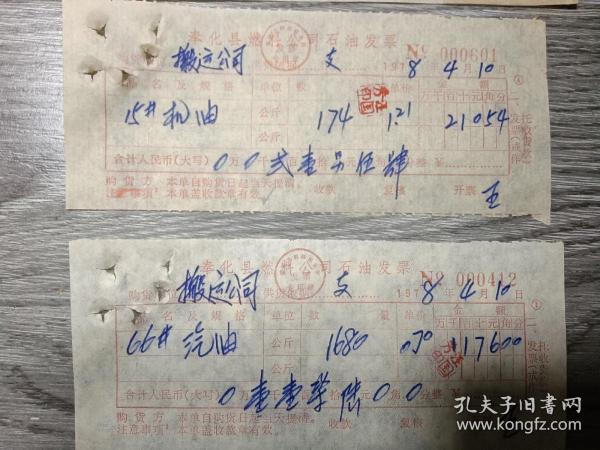 奉化县燃料公司石油发票
№ 000601
搬运公司 支 1978 4 10
品名及规格 单位 数量 单价 金额
万千百十元角分
15# 机油 公斤 174 1.21 21054
合计人民币(大写) 0万0千弍百壹拾另元伍角肆分整 ¥
购货方注意事项: 本单自购货日起当天提清。
本单盖收款章有效。
收款 复核 开票 王
奉化县燃料公司石油发票
№ 000412
购货 搬运公司 支 1978年4月10
品名及规格 单位 数量 单价 金额
万千百十元角分
66# 汽油 公斤 1680 0.70 117600
合计人民币(大写) 0壹壹柒陆00 分整 ¥
购货方注意事项: 本单自购货日起当天提清。
本单盖收款章有效。
收款 复核 王
孔夫子旧书网